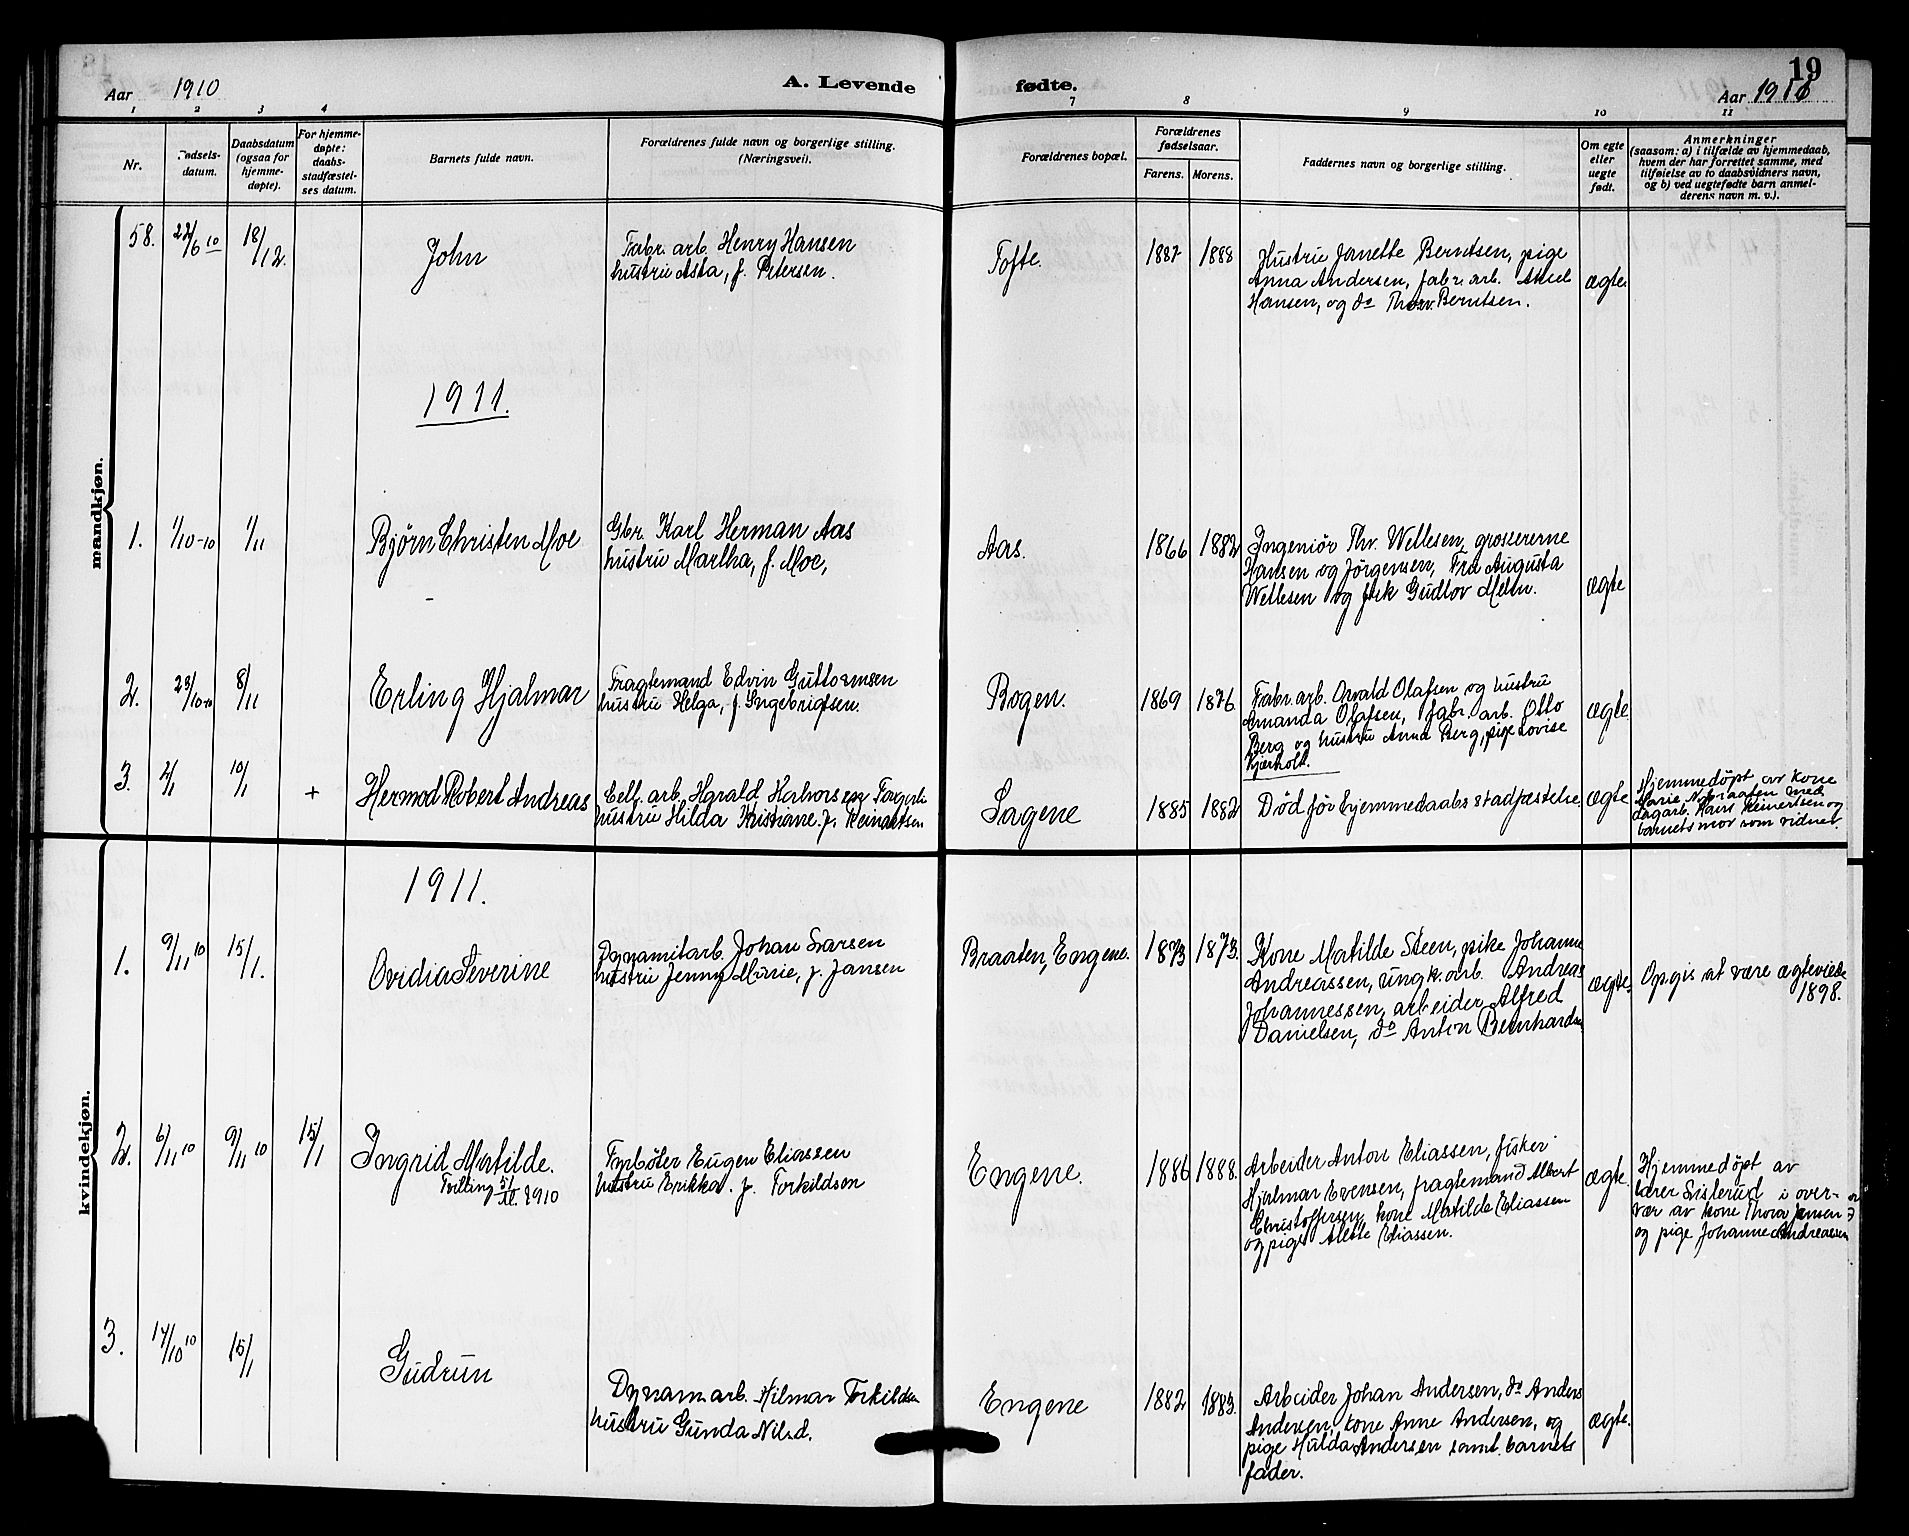 Aar 1910
A. Levende
fødte.
19
Aar 1910
1 2 3 4 7 8 9 10 11
Nr.
Fødsels-
datum.
Daabsdatum
(ogsaa for
hjemme-
døpte).
For hjemme-
døpte:
daabs-
stadfæstel-
ses datum.
Barnets fulde navn.
Forældrenes fulde navn og borgerlige stilling.
(Næringsvei).
Forældrenes bopæl.
Forældrenes
fødselsaar.
Farens. Morens.
Faddernes navn og borgerlige stilling.
Om egte
eller
uegte
født.
Anmerkninger
(saasom: a) i tilfælde av hjemmedaab,
hvem der har forrettet samme, med
tilføielse av to daabsvidners navn,
og b) ved uegtefødte barn anmel-
derens navn m. v.).
mandkjøn.
58. 22/6 10 18/12.
John
Fabr. arb. Henry Hansen
hustru Asta, f. Petersen.
Tofte.
1887 1888
Hustru Janette Berntsen, pige
Anna Andersen, fabr. arb. Aksel
Hansen, og do Thorv. Berntsen.
ægte
1911.
1. 1/10-10 1/11
Bjørn Christen Moe
Gbr. Karl Herman Aas
hustru Martha, f. Moe,
Aas.
1866 1882
Ingeniør Thv. Wellesen, grossererne
Hansen og Jörgensen, Fru Augusta
Wellesen og frk Gudlov Melin.
ægte
2. 23/10-10 8/11
Erling Hjalmar
Fragtemand Edvin Guttormsen
hustru Helga, f. Ingebrigtsen.
Bogen.
1869 1876
Fabr. arb. Osvald Olafsen og hustru
Amanda Olafsen, fabr. arb. Otto
Berg og hustru Anna Berg, pige Lovise
Kjærholt.
ægte.
3. 2/1 10/1 +
Hermod Robert Andreas
Cell. arb. Harald Halvorsen
hustru Hilda Kristiane f. Reinertsen
Sagene
1885 1882
Død før hjemmedaabs stadfæstelse
ægte
Hjemmedøpt av kone
Marie Nybraaten med
dagarb. Hans Reinertsen og
barnets mor som vidner.
kvindekjøn.
1911.
1. 9/11 10 15/1.
Ovidia Severine
Dynamitarb. Johan Larsen
hustru Jenny Marie, f. Jansen
Braaten, Engene.
1873 1873.
Kone Matilde Steen, pike Johanne
Andreassen, ungk. arb. Andreas
Johannessen, arbeider Alfred
Danielsen, do Anton Bernhardsen
ægte.
Opgis at være ægteviede
1898.
2. 6/11 10 9/11 10 15/1
Ingrid Matilde.
Tvilling 5/11. 1910
Fyrbøter Eugen Eliassen
hustru Erikka. f. Torkildsen
Engene.
1886 1888.
Arbeider Anton Eliassen, fisker
Hjalmar Evensen, fragtemand Albert
Christoffersen, kone Matilde Eliassen
og pige Alette Eliassen.
ægte.
Hjemmedøpt av
lærer Sislerud i over-
vær av kone Thora Jensen
og pige Johanne Andreassen
3. 14/10 10 15/1
Gudrun
Dynam. arb. Hilmar Torkildsen
hustru Gunda Nilsd.
Engene
1882 1883.
Arbeider Johan Andersen, do Anders
Andersen, kone Anne Andersen, og
pige Hulda Andersen samt barnets
fader.
ægte.